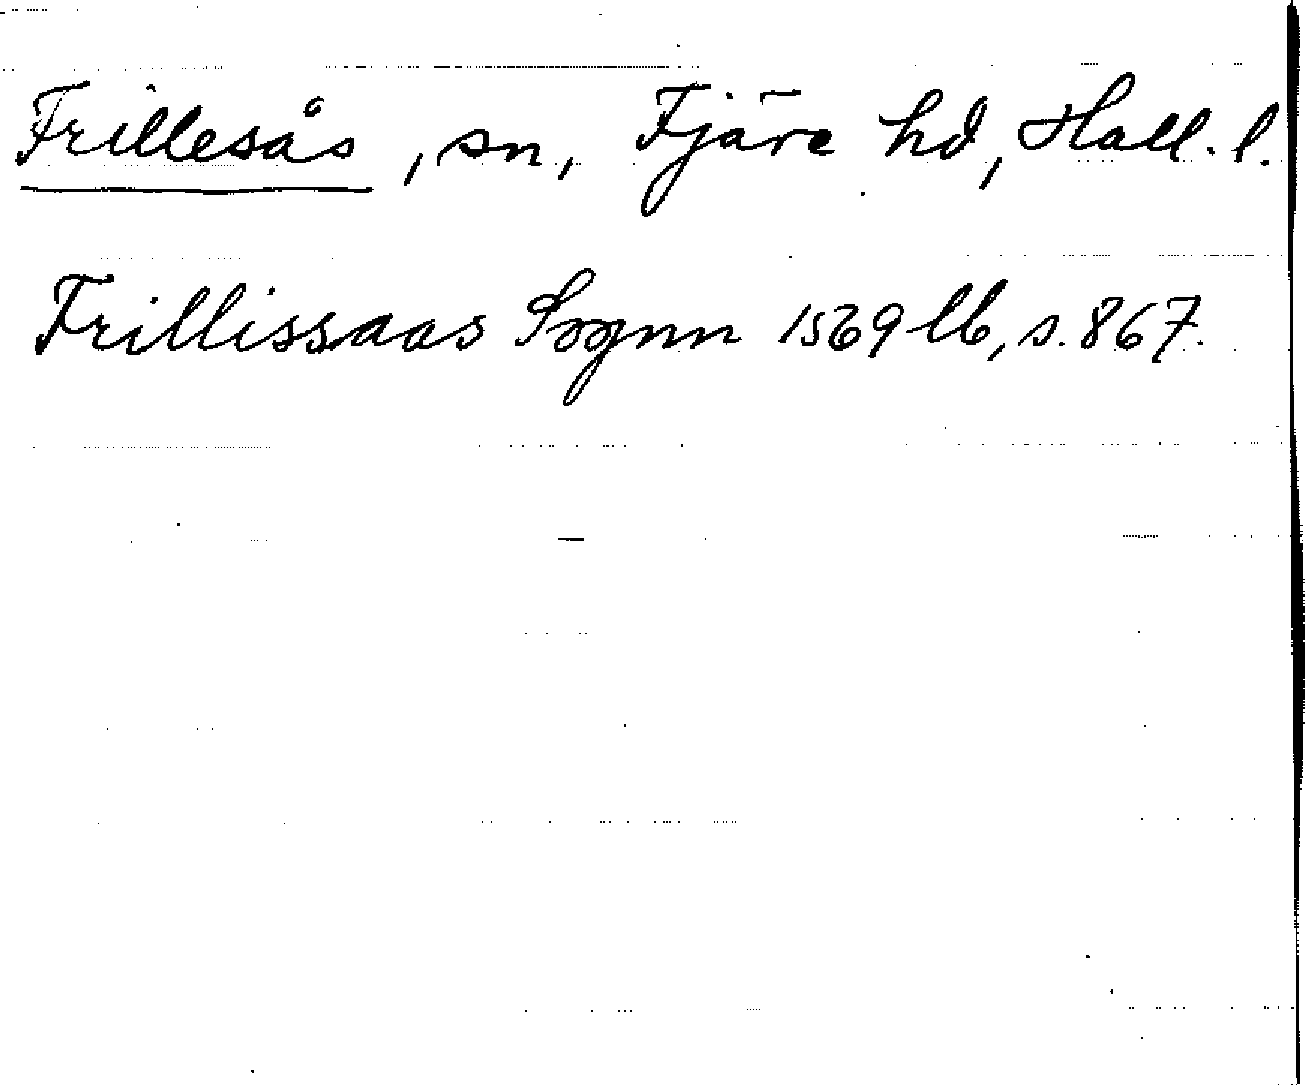 Frillesås, sn, Fjäre hd, Hall. l.
Frillissaas Sognn 1569 lb, s. 867.